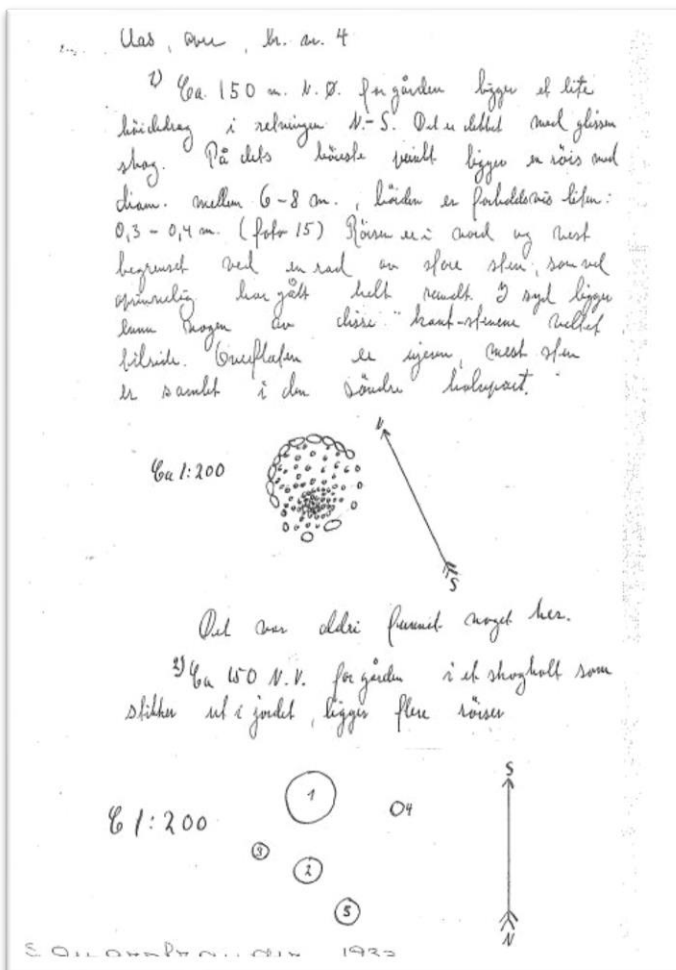 Aas, øvre, br. nr. 4
1) Ca. 150 m. N.Ø. for gården ligger et lite
höidedrag i retningen N.-S. Det er dekket med glissen
skog. På dets höieste punkt ligger en röis med
diam. mellem 6-8 m., höiden er forholdsvis liten:
0,3 - 0,4 m. (foto 15) Röisen er i nord og vest
begrenset ved en rad av store sten, som vel
oprinnelig har gått helt rundt. I syd ligger
ennu nogen av disse "kant-stenene veltet
tilside. Overflaten er ujevn, mest sten
er samlet i den söndre halvpart.
Ca 1:200
N
S
Det var aldri funnet noget her.
2) Ca 150 N.V. for gården i et skogholt som
stikker ut i jordet, ligger flere röiser
C 1:200
1
O4
3
2
5
S
N